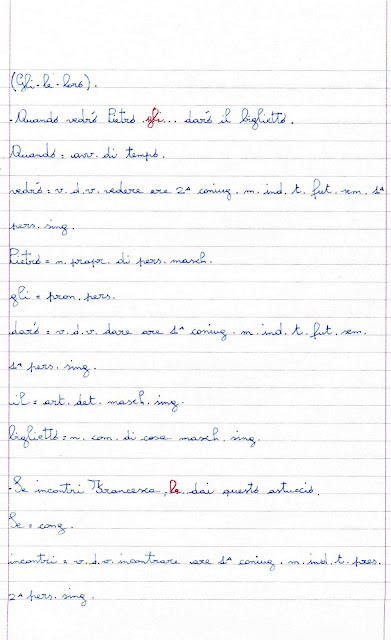 (Gli-le-loro).
-Quando vedrò Pietro gli... darò il biglietto.
Quando= avv. di tempo.
vedrò= v. d. v. vedere ere 2ª coniug. m. ind. t. fut. sem. 1ª
pers. sing.
Pietro= n. propr. di pers. masch.
gli= pron. pers.
darò= v. d. v. dare are 1ª coniug. m. ind. t. fut. sem.
1ª pers. sing.
il= art. det. masch. sing.
biglietto= n. com. di cosa masch. sing.
-Se incontri Francesca, le dai questo astuccio.
Se= cong.
incontri= v. d. v. incontrare are 1ª coniug. m. ind. t. pres.
2ª pers. sing.